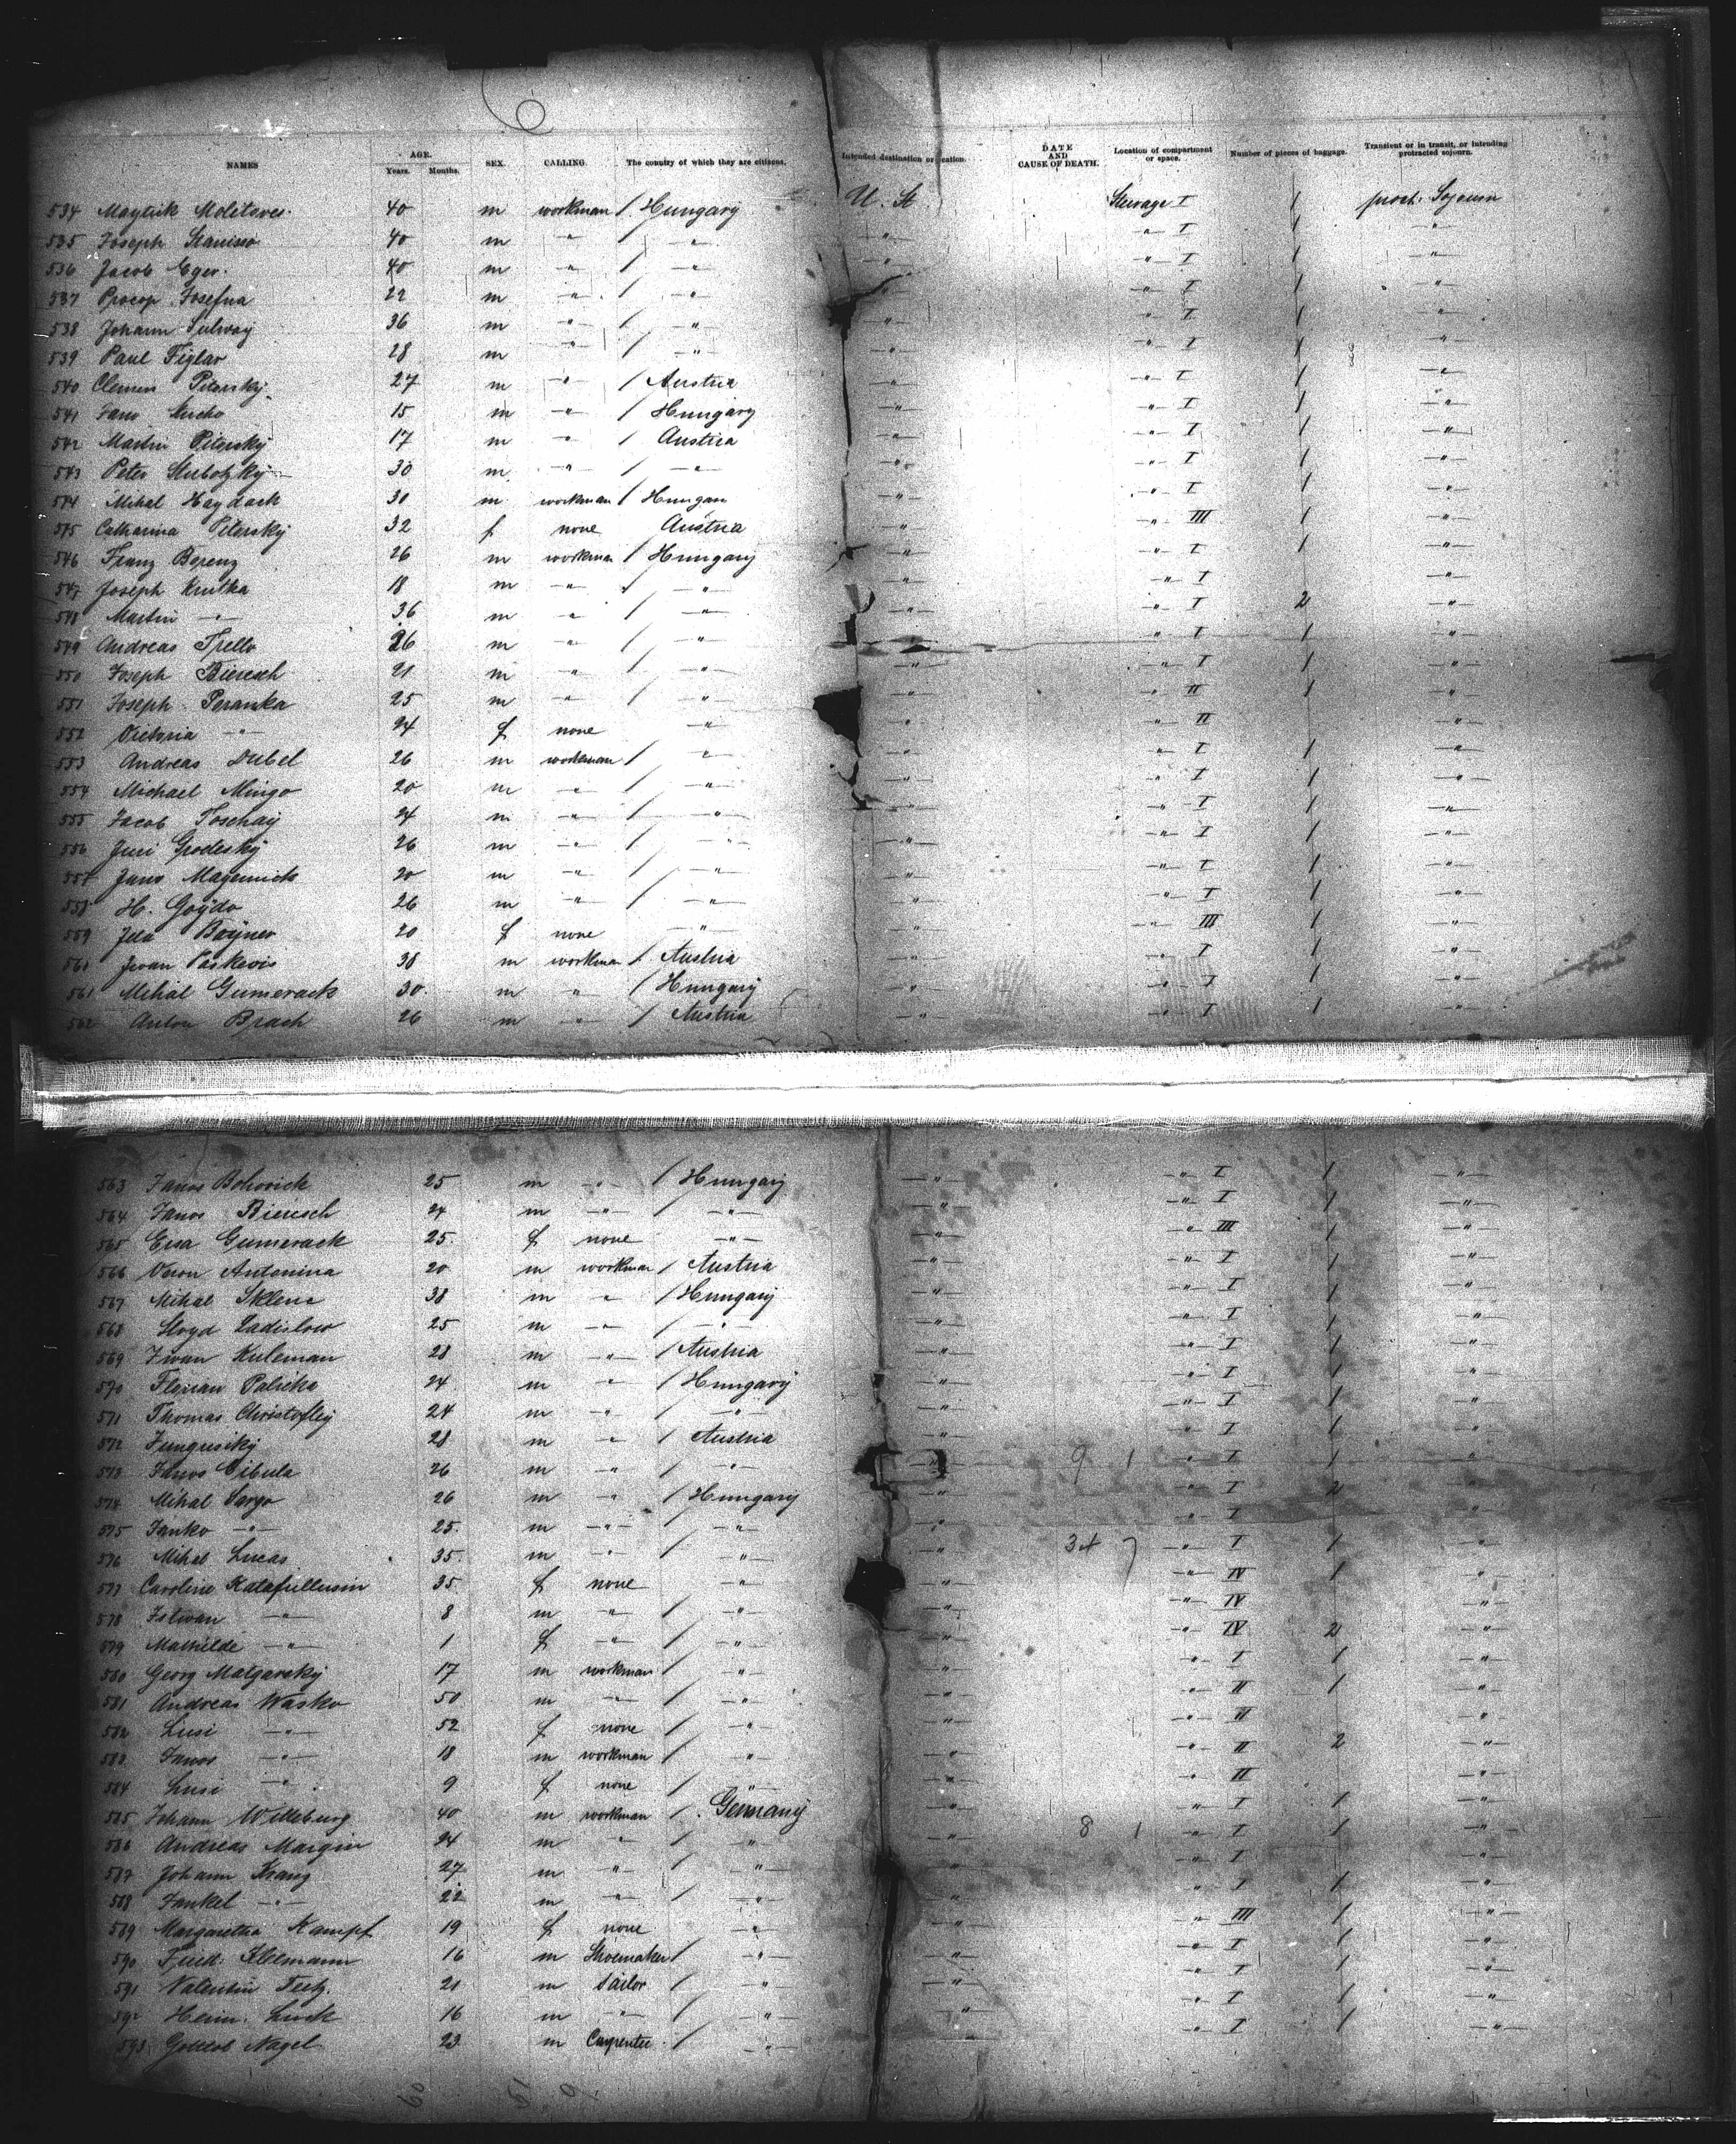 NAMES AGE. Years. Months. SEX. CALLING. The country of which they are citizens. Intended destination or location. DATE AND CAUSE OF DEATH. Location of compartment or space. Number of pieces of baggage. Transient or in transit, or intending protracted sojourn.
534 Maytuk Molitores 40 m workman / Hungary U. St Steerage I 1 prot. Sojourn
535 Joseph Stanisso 40 m " / " " " I 1 "
536 Jacob Eger 40 m " / " " " I 1 "
537 Procop Josefna 22 m " / " " " I 1 "
538 Johann Sulway 36 m " / " " " I 1 "
539 Paul Figlar 28 m " / " " " I 1 "
540 Clemen Pitersky 27 m " / Austria " " I 1 "
541 Jano 15 m " / Hungary " " I 1 "
542 Martin Pitersky 17 m " / Austria " " I 1 "
543 Peter 30 m " / " " " I 1 "
544 Mihal Haydack 30 m workman / Hungary " " I 1 "
545 Catharina Pitersky 32 f none Austria " " III 1 "
546 Franz Berenz 26 m workman / Hungary " " I 1 "
547 Joseph Krutka 18 m " / " " " I "
548 Martin " 36 m " / " " " I 2 "
549 Andreas Spello 26 m " / " " " I 1 "
550 Joseph Bieresch 21 m " / " " " I 1 "
551 Joseph Peranka 25 m " / " " " II 1 "
552 Victoria " 24 f none " " " II "
553 Andreas Dubel 26 m workman / " " " I 1 "
554 Michael Mingo 20 m " / " " " I 1 "
555 Jacob Toschay 24 m " / " " " I 1 "
556 Juri Grodesky 26 m " / " " " I 1 "
557 Jano 20 m " / " " " I 1 "
558 H. Goydo 26 m " / " " " I 1 "
559 Ida Boyner 20 f none " " " III 1 "
560 Jwan Paskevis 38 m workman / Austria " " I 1 "
561 Mihal Gumerack 30 m " / Hungary " " I 1 "
562 Anton Brach 26 m " / Austria " " I 1 "
563 Janos Bohovick 25 m " / Hungary " " I 1 "
564 Janos Bieresch 24 m " / " " " I 1 "
565 Eva Gumerack 25 f none " " " III 1 "
566 Veron Antonina 20 m workman / Austria " " I 1 "
567 Mihal Sklena 38 m " / Hungary " " I 1 "
568 Ladislow 25 m " / " " " I 1 "
569 Iwan Kuleman 28 m " / Austria " " I 1 "
570 Florian Palicka 24 m " / Hungary " " I 1 "
571 Thomas Christofley 24 m " / " " " I 1 "
572 28 m " / Austria " " I 1 "
573 Janos Cibula 26 m " / " " 9 1 " I 1 "
574 Mihal Sargo 26 m " / Hungary " " I 2 "
575 Janko " 25 m " / " " " I "
576 Mihal Lucas 35 m " / " " 34 7 " I 1 "
577 Caroline Katafullusin 35 f none " " " IV 1 "
578 Istwan " 8 m " / " " " IV "
579 Mathilde " 1 f " / " " " IV 2 "
580 Georg Matgarsky 17 m workman / " " " I 1 "
581 Andreas Wasko 50 m " / " " " II 1 "
582 Lusi " 52 f none / " " " II "
583 Janos " 18 m workman / " " " II 2 "
584 Lusi " 9 f none / " " " II "
585 Johann Willeburg 40 m workman / Germany " " I 1 "
586 Andreas Margin 24 m " / " " 8 1 " I 1 "
587 Johann Krang 27 m " / " " " I "
588 Jankel " 22 m " / " " " I 1 "
589 Margaretha Kampf 19 f none " " III 1 "
590 Fried. Kleemann 16 m Shoemaker / " " " I 1 "
591 Valentin Teetz 21 m Tailor / " " " I 1 "
592 Heinr. Luck 16 m " / " " " I 1 "
593 Gottlob Nagel 23 m Carpenter / " " I 1 "